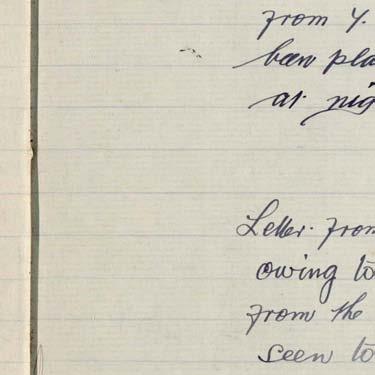 from Y.
been pla
at nig
Letter from
owing to
from the
seen to